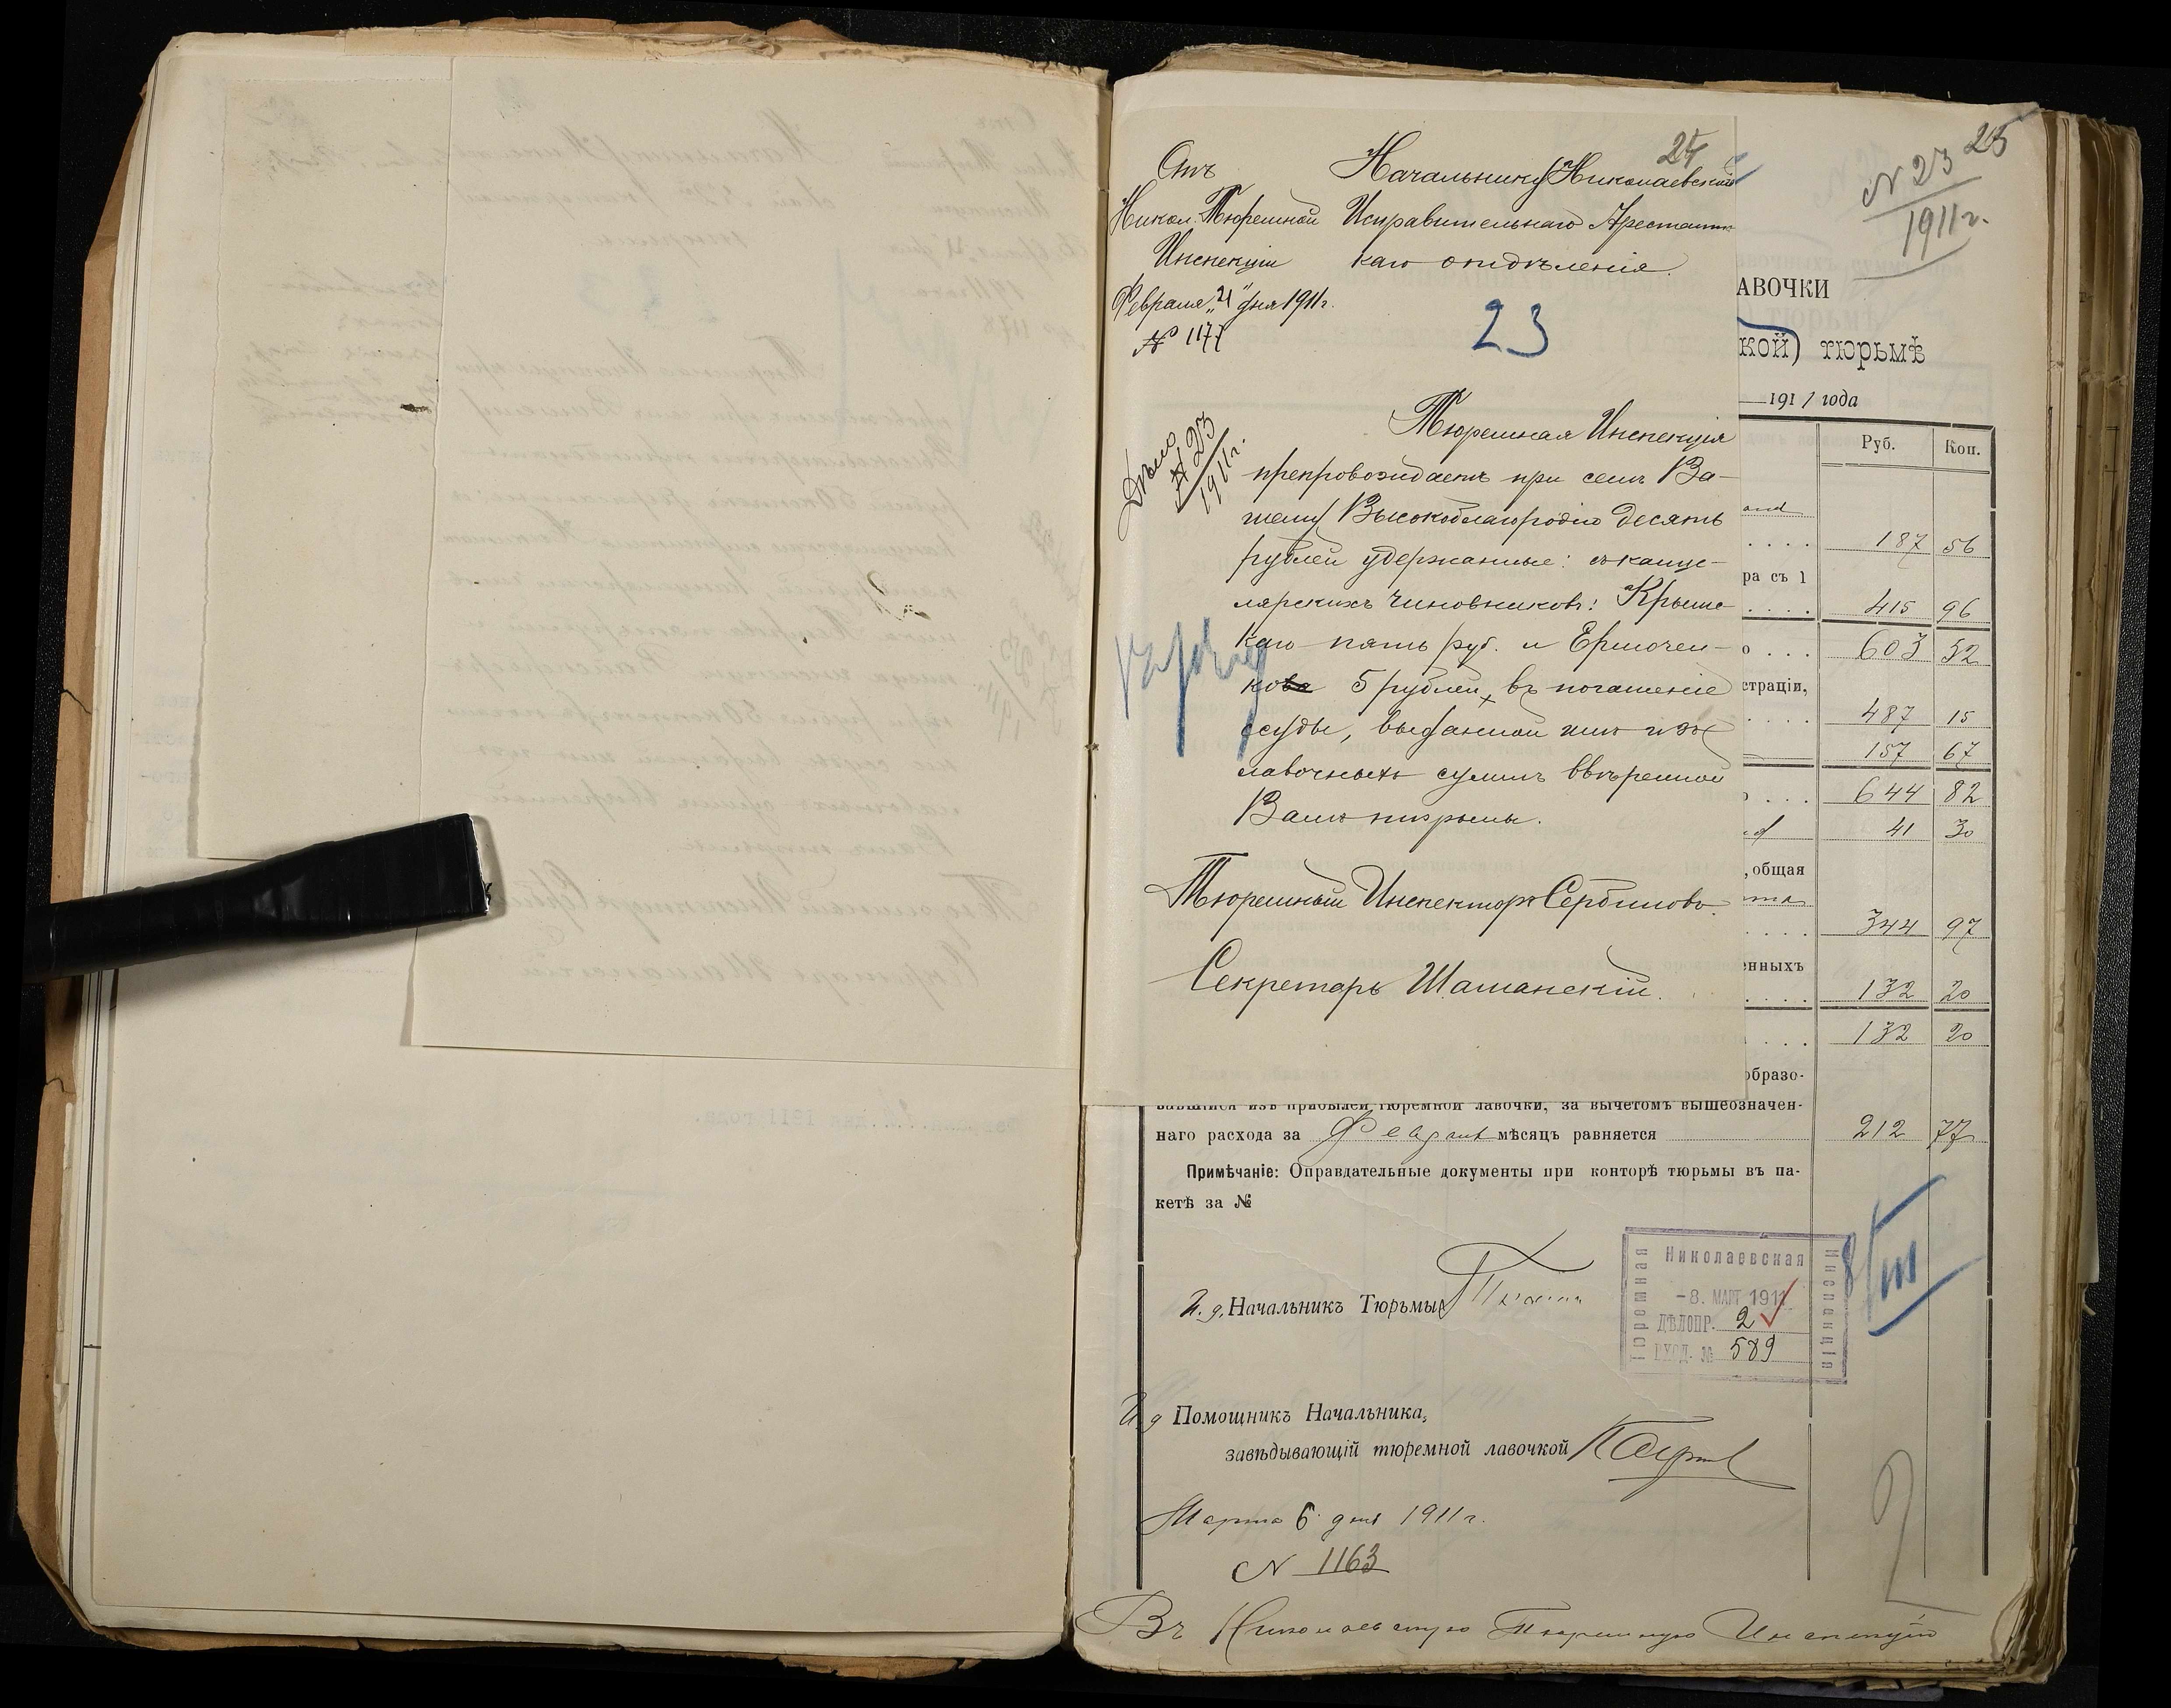 24
Отъ
Никол. Тюремной
Инспекціи
Февраля „21" дня 1911 г.
№ 1177
Начальнику Николаевскаго
Исправительнаго Арестантс
каго отдѣленія.
23
Дѣло
№ 23
1911 г.
Тюремная Инспекція
препровождаетъ при семъ Ва-
шему Высокоблагородію десять
рублей удержанные: съ канце-
лярскихъ чиновниковъ: Крыше
каго пять руб. и Ермочен-
ко 5 рублей, въ погашеніе
ссуды, выданной имъ изъ
лавочныхъ суммъ ввѣренной
Вамъ тюрьмы.
Тюремный Инспекторъ Сербиновъ.
Секретарь Шаманскій.
25
N 23
1911 г.
АВОЧКИ
кой) тюрьмѣ
191 1 года
Руб. Коп.
187 56
ра съ 1
415 96
о 603 52
страціи,
487 15
157 67
644 82
41 30
, общая
344 97
енныхъ
132 20
132 20
образо-
вавшійся изъ прибылей тюремной лавочки, за вычетомъ вышеозначен-
наго расхода за Февраль мѣсяцъ равняется 212 77
Примѣчаніе: Оправдательные документы при конторѣ тюрьмы въ па-
кетѣ за №
И. д. Начальникъ Тюрьмы
Николаевская
Тюремная
Инспекція
-8. МАРТ 1911
ДѢЛОПР. 2
ВХОД. № 589
8/III
И д Помощникъ Начальника,
завѣдывающій тюремной лавочкой
Марта 6 дня 1911 г.
N 1163
Въ Николаевскую Тюремную Инспекцію